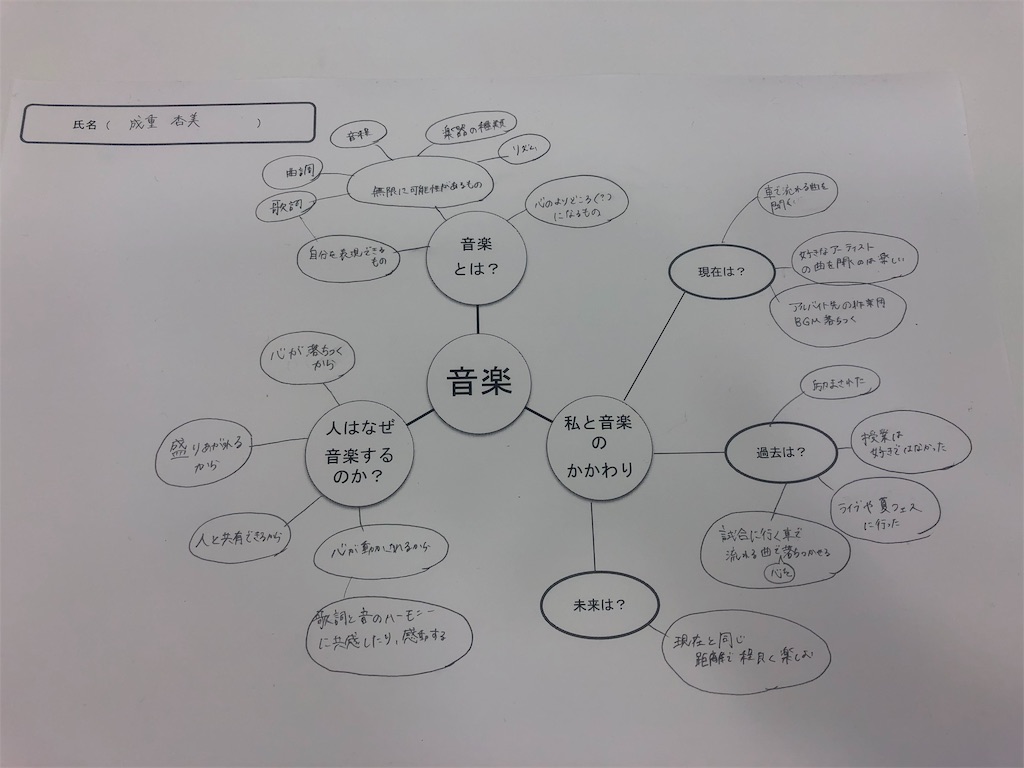 氏名（ 成重 杏美 ）
音程
楽器の種類
リズム
曲調
歌詞
無限に可能性があるもの
心のよりどころ(?)
になるもの
自分を表現できる
もの
音楽
とは？
音楽
人はなぜ
音楽する
のか？
心が落ちつく
から
盛りあがれる
から
人と共有できるから
心が動かされるから
歌詞と音のハーモニー
に共感したり、感動する
私と音楽
の
かかわり
現在は？
車で流れる曲を
聞く
好きなアーティスト
の曲を聞くのは楽しい
アルバイト先の作業用
BGM 落ちつく
過去は？
励まされた
授業は
好きではなかった
ライブや夏フェス
に行った
試合に行く車で
流れる曲で落ちつかせる
心を
未来は？
現在と同じ
距離で程良く楽しむ